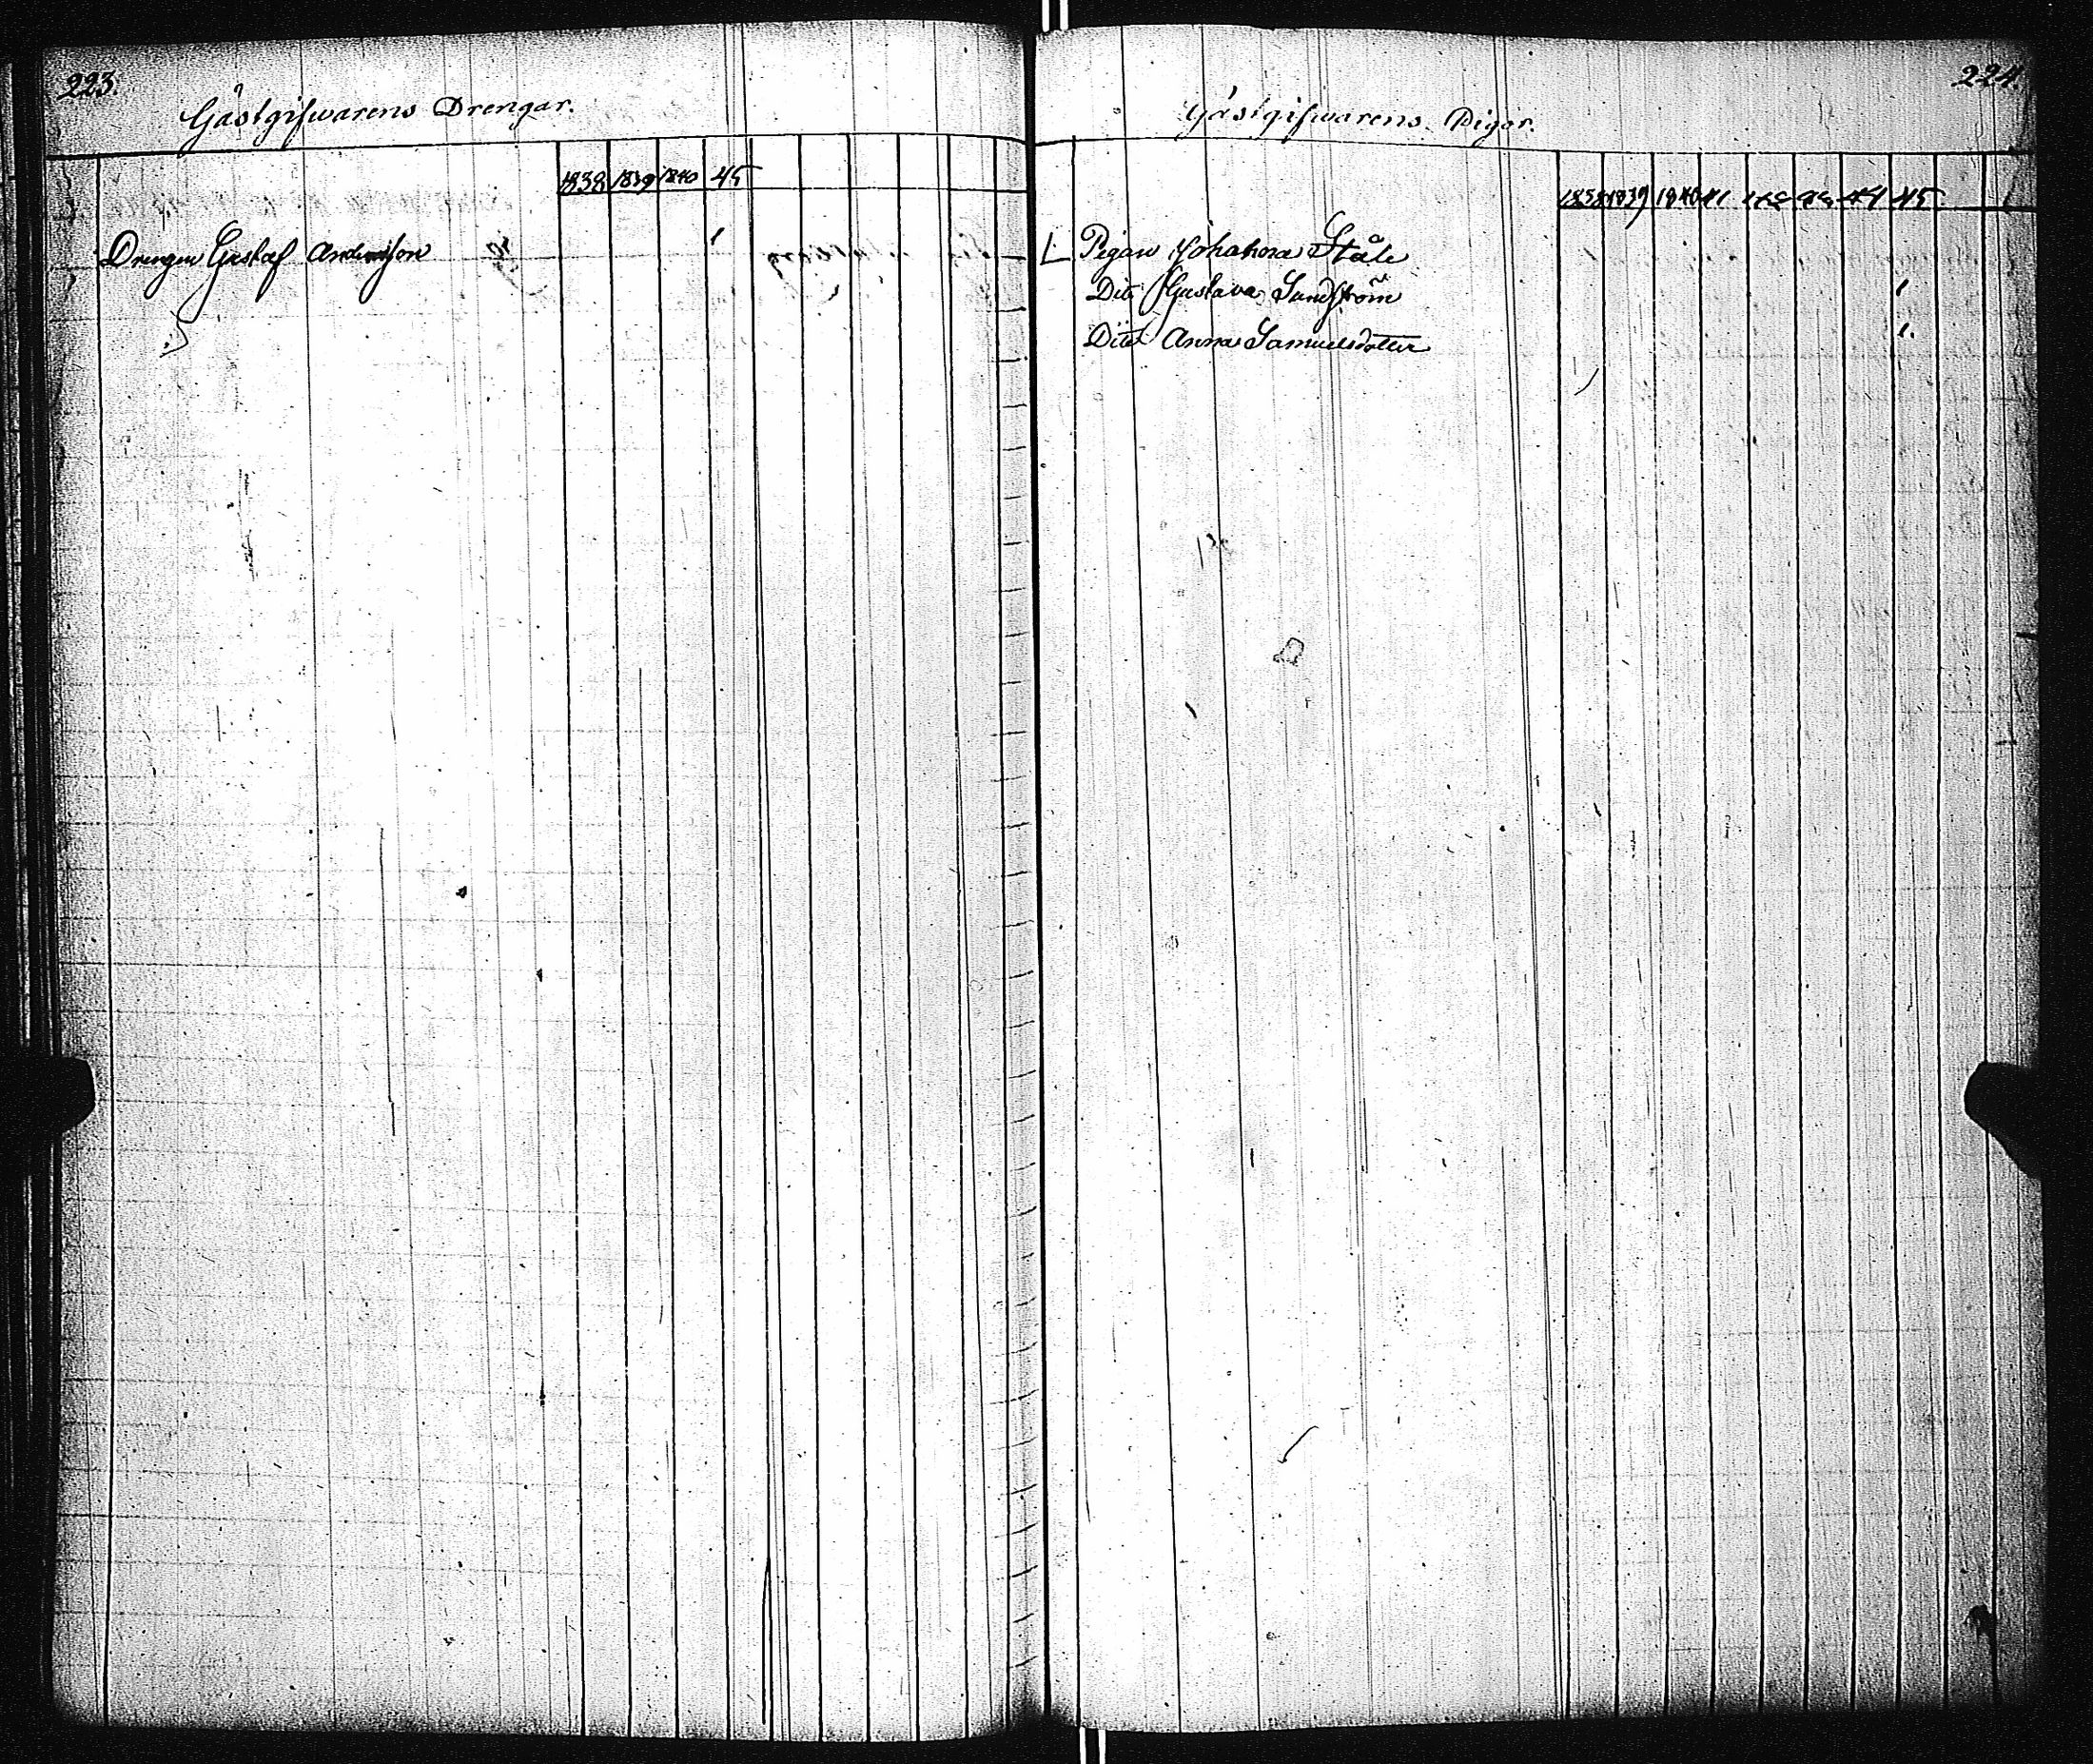 223.
Gästgifwarens Drengar.
1838 1839 1840 45
Drengen Gustaf Andersson 1
224.
Gästgifwarens Pigor.
1838 1839 1840 41 42 43 44 45
L Pigan Johanna Ståle
Dito Gustava Sundström 1
Dito Anna Samuelsdotter 1.